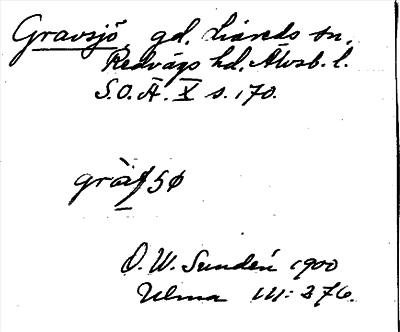 Gravsjö, gd. Liareds sn.
Redvägs hd. Älvsb. l.
S.O.Ä. X s. 170.
O. W. Sundén 1900
Ulma 111: 376.